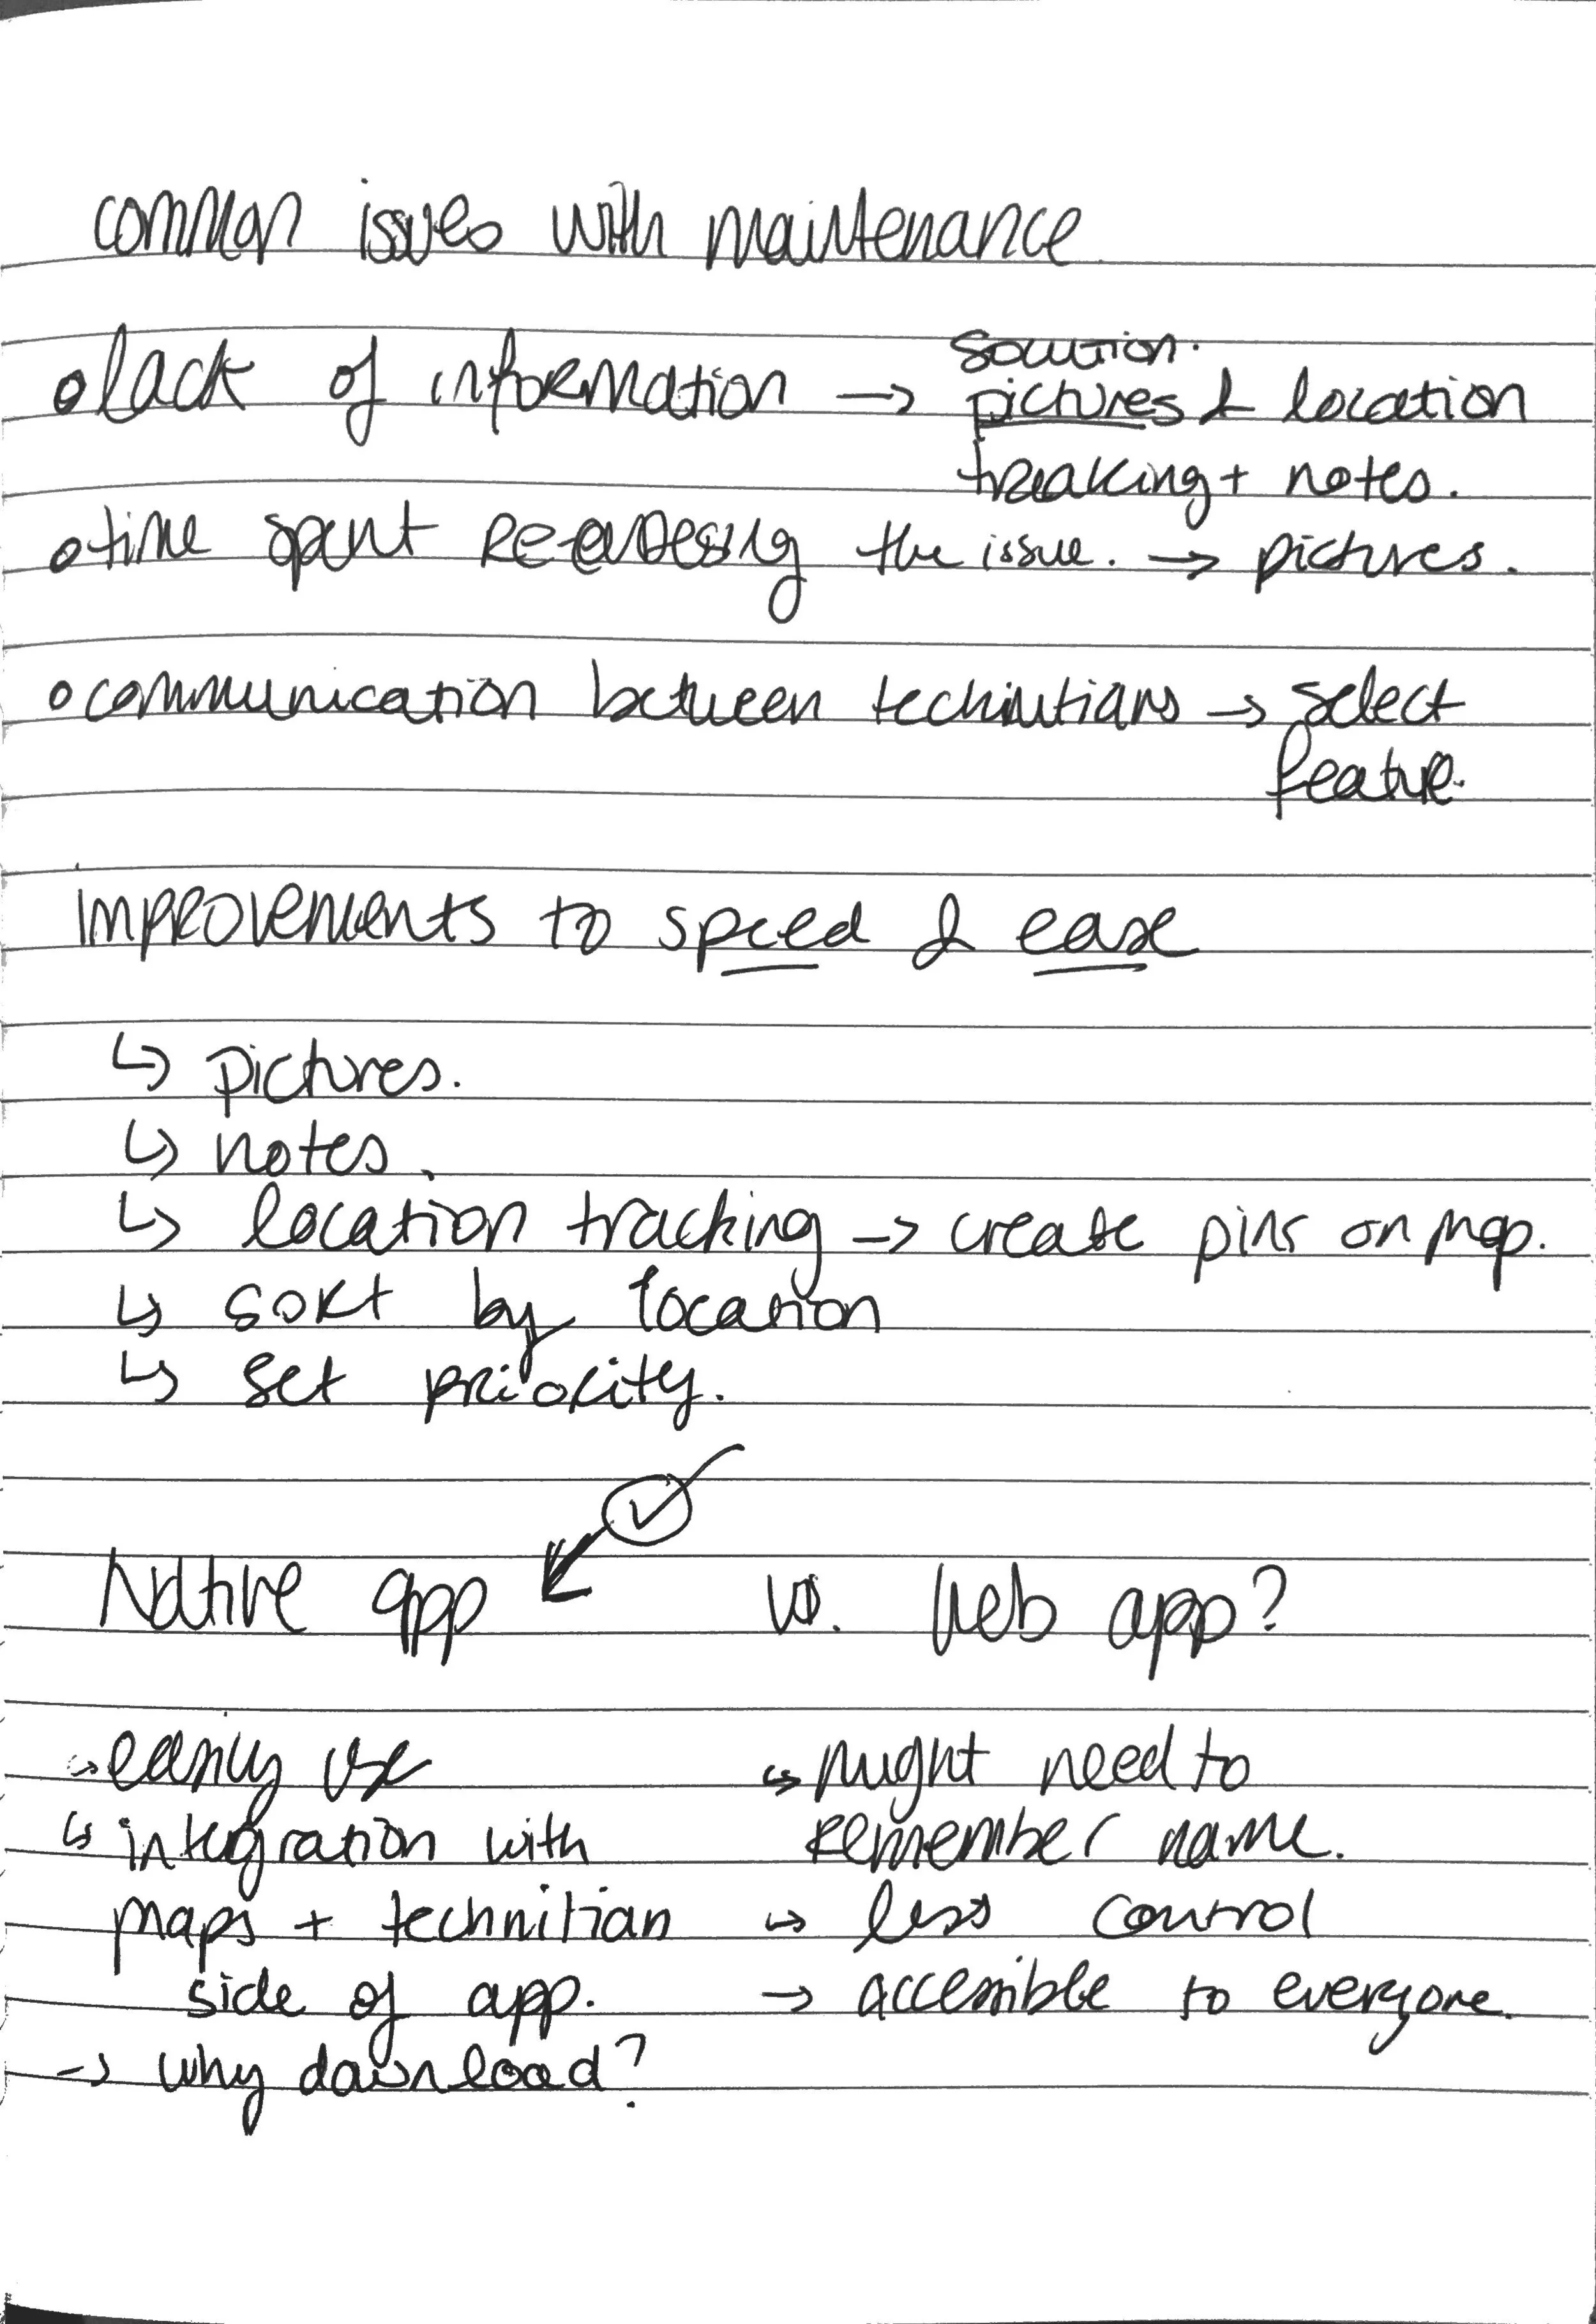 common issues with maintenance
o lack of information → solution.
pictures & location
tracking + notes.
o time spent re-assessing the issue. → pictures.
o communication between techinitians → select
feature.
improvements to speed & ease
↳ pictures.
↳ notes.
↳ location tracking → create pins on map.
↳ sort by location
↳ set priority.
Native app vs. Web app?
→ easily use
↳ integration with
maps + technitian
side of app.
→ why download?
↳ might need to
remember name.
↳ less control
→ accessible to everyone.